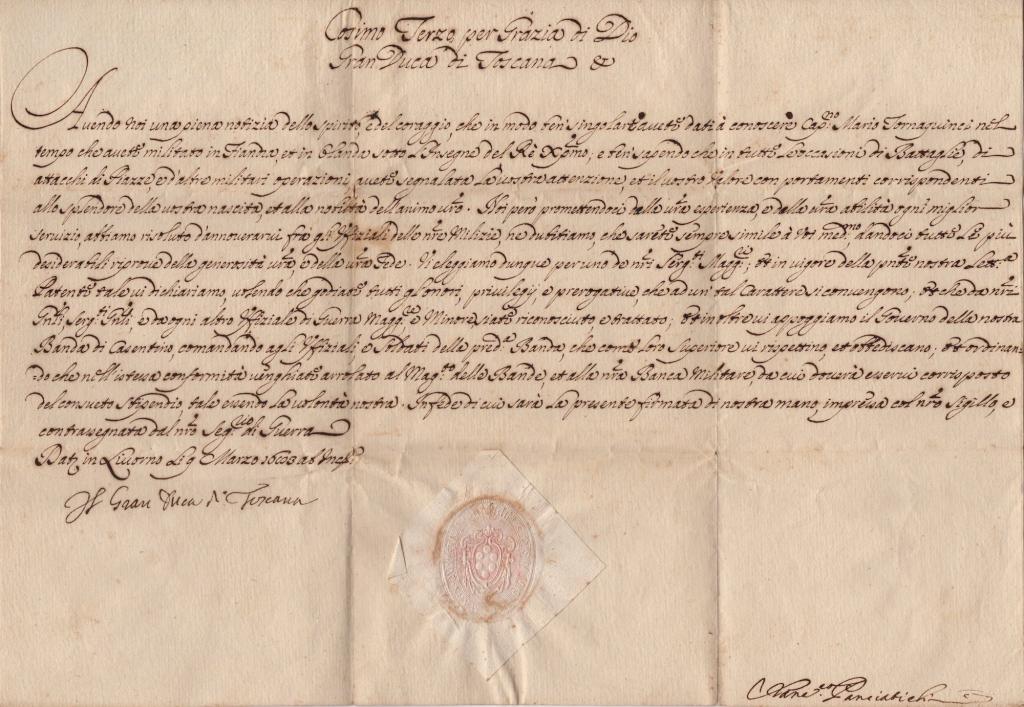 Cosimo Terzo per Grazia di Dio
Gran Duca di Toscana &
Avendo Noi una piena notizia dello spirito, e del coraggio, che in modo ben singolare avete dati à conoscere Cap.no Mario Tornaquinci nel
tempo che avete militato in Fiandra, et in Olanda sotto l'Insegne del Rè Xp̃mo, e ben sapendo che in tutte l'occasioni di Battaglie, di
attacchi di Piazze, e d'altre militari operazioni, avete segnalata la vostra attenzione, et il vostro valore con portamenti corrispondenti
allo splendore della vostra nascita, et alla nobiltà dell'animo vr̃o. Noi però promettendoci dalla vr̃a esperienza, e dalla vr̃a abilità ogni miglior
servizio, abbiamo risoluto d'annoverarvi frà gli Vffiziali delle nr̃e Milizie, ne dubitiamo, che sarete sempre simile à Voi med.mo, dandoci tutte le più
desiderabili riprove della generosità vr̃a, e della vr̃a Fede. Vi eleggiamo dunque per uno de nr̃i Serg.ti Magg.ri; et in vigore della pñte nostra Lett.a
Patente tale vi dichiariamo, volendo che godiate tutti gl'onori, privilegij e prerogative, che ad un tal Carattere si convengono; et che da nr̃i
Gñli, Serg.ti Gñli, e da ogni altro Vffiziale di Guerra Magg.re e Minore, siate riconosciuto, e trattato; et inoltre vi appoggiamo il Governo della nostra
Banda di Casentino, comandando agli Vffiziali, e Soldati della pred.a Banda, che come loro Superiore vi rispettino, et obbediscano; et ordinan-
do che nell'istessa conformità venghiate arrolato al Mag.to delle Bande, et alla nr̃a Banca Militare, da cui doverà esservi corrisposto
del consueto stipendio, tale essendo la volontà nostra. In fede di cui sarà la presente firmata di nostra mano, impressa col nr̃o Sigillo, e
contrassegnata dal nr̃o Seg.rio di Guerra
Dat. in Livorno li 9 Marzo ab Inc.
Il Gran Duca di Toscana
Panciatichi